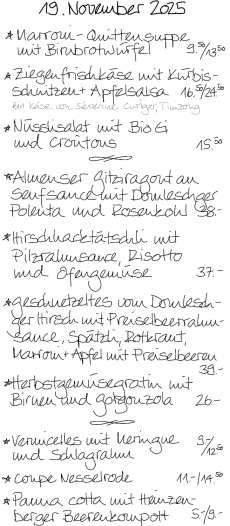 19. November 2025
* Marroni-Quittensuppe
mit Birnbrotwürfel 9.50/13.50
* Ziegenfrischkäse mit Kürbis-
schnitzen + Apfelsalsa 16.50/24.50
Bio Käse von Severine Curiger,
* Nüsslisalat mit Bio Ei
und Croûtons 15.50
* Almenser Gitziragout an
Senfsauce mit Domleschger
Polenta und Rosenkohl 38.-
* Hirschhacktätschli mit
Pilzrahmsauce, Risotto
und Ofengemüse 37.-
* geschnetzeltes vom Domlesch-
ger Hirsch mit Preiselbeerrahm-
sauce, Spätzli, Rotkraut,
Marroni + Apfel mit Preiselbeeren
39.-
* Herbstgemüsegratin mit
Birnen und Gorgonzola 26.-
* Vermicelles mit Meringue 9.-/
und Schlagrahm 12.50
* Coupe Nesselrode 11.-/14.50
* Panna cotta mit Heinzen-
berger Beerenkompott 5.-/9.-